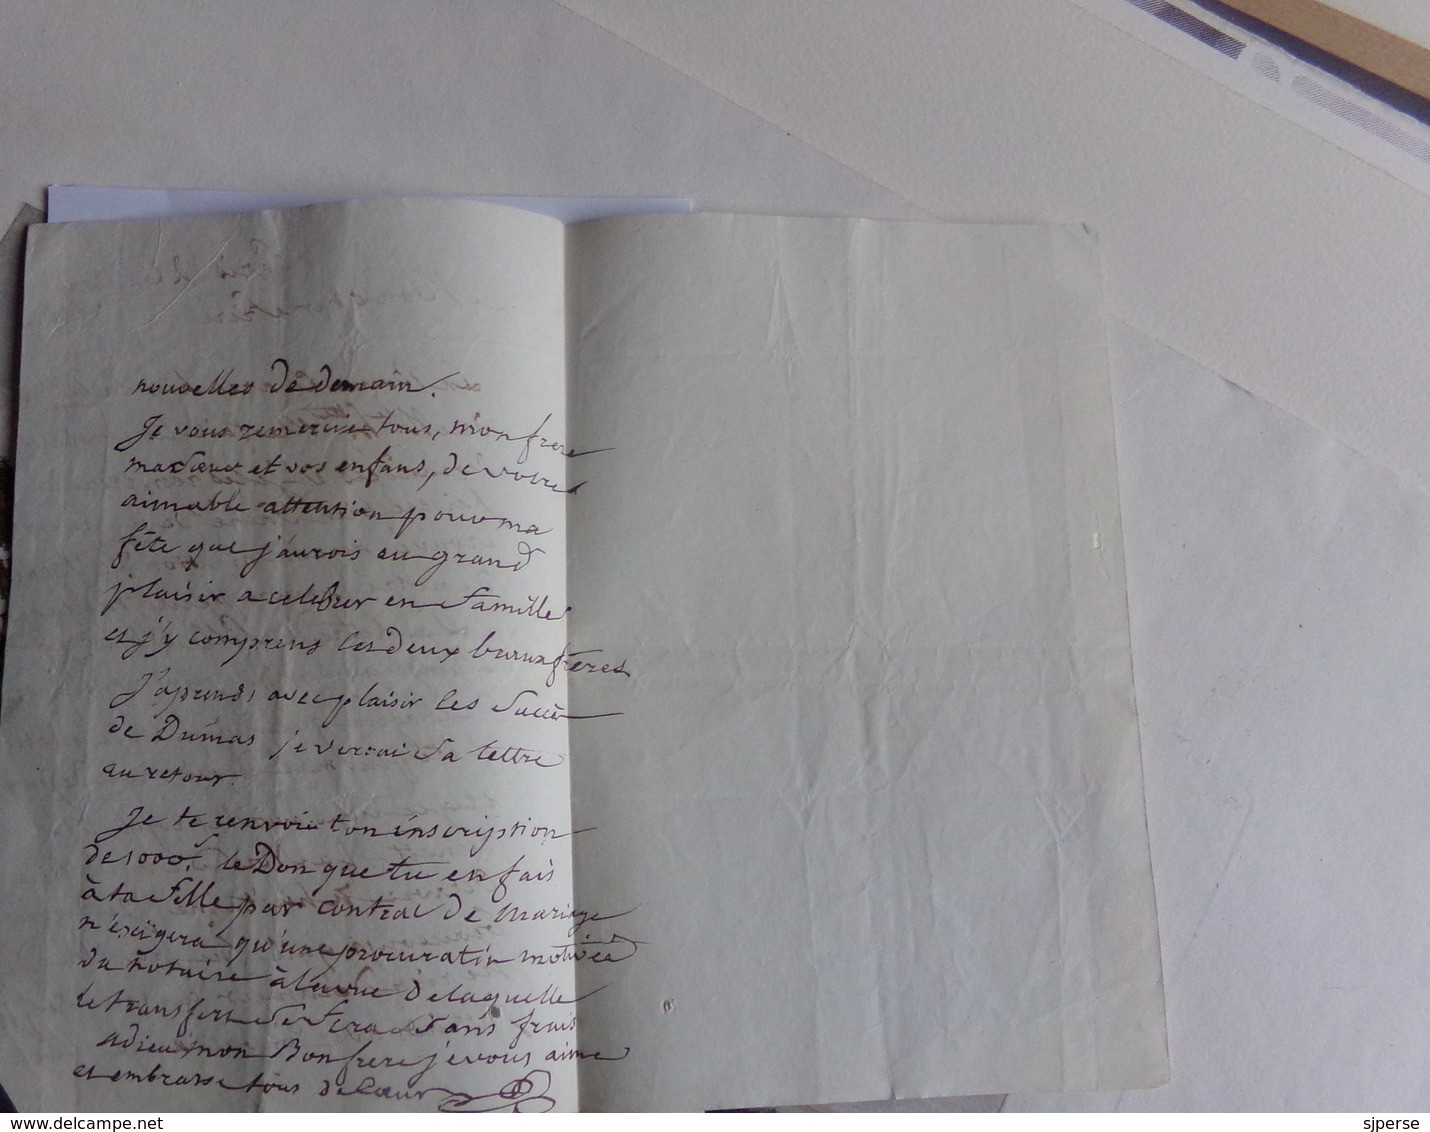 nouvelles de demain.
Je vous remercie tous, mon frere
ma sœur et vos enfans, de votre
aimable attention pour ma
fête que j'aurois eu grand
plaisir a celebrer en famille
et j'y comprens les deux beauxfrères
J'aprends avec plaisir les succès
de Dumas je verrai sa lettre
au retour.
Je te renvoie ton inscription
de 1000f. le Don que tu en fais
à ta fille par contrat de mariage
n'éxigera qu'une procuration motivée
du notaire à la vue de laquelle
le transfert se fera sans frais
adieu mon Bon frere je vous aime
et embrasse tous de cœur
sjperse
www.delcampe.net